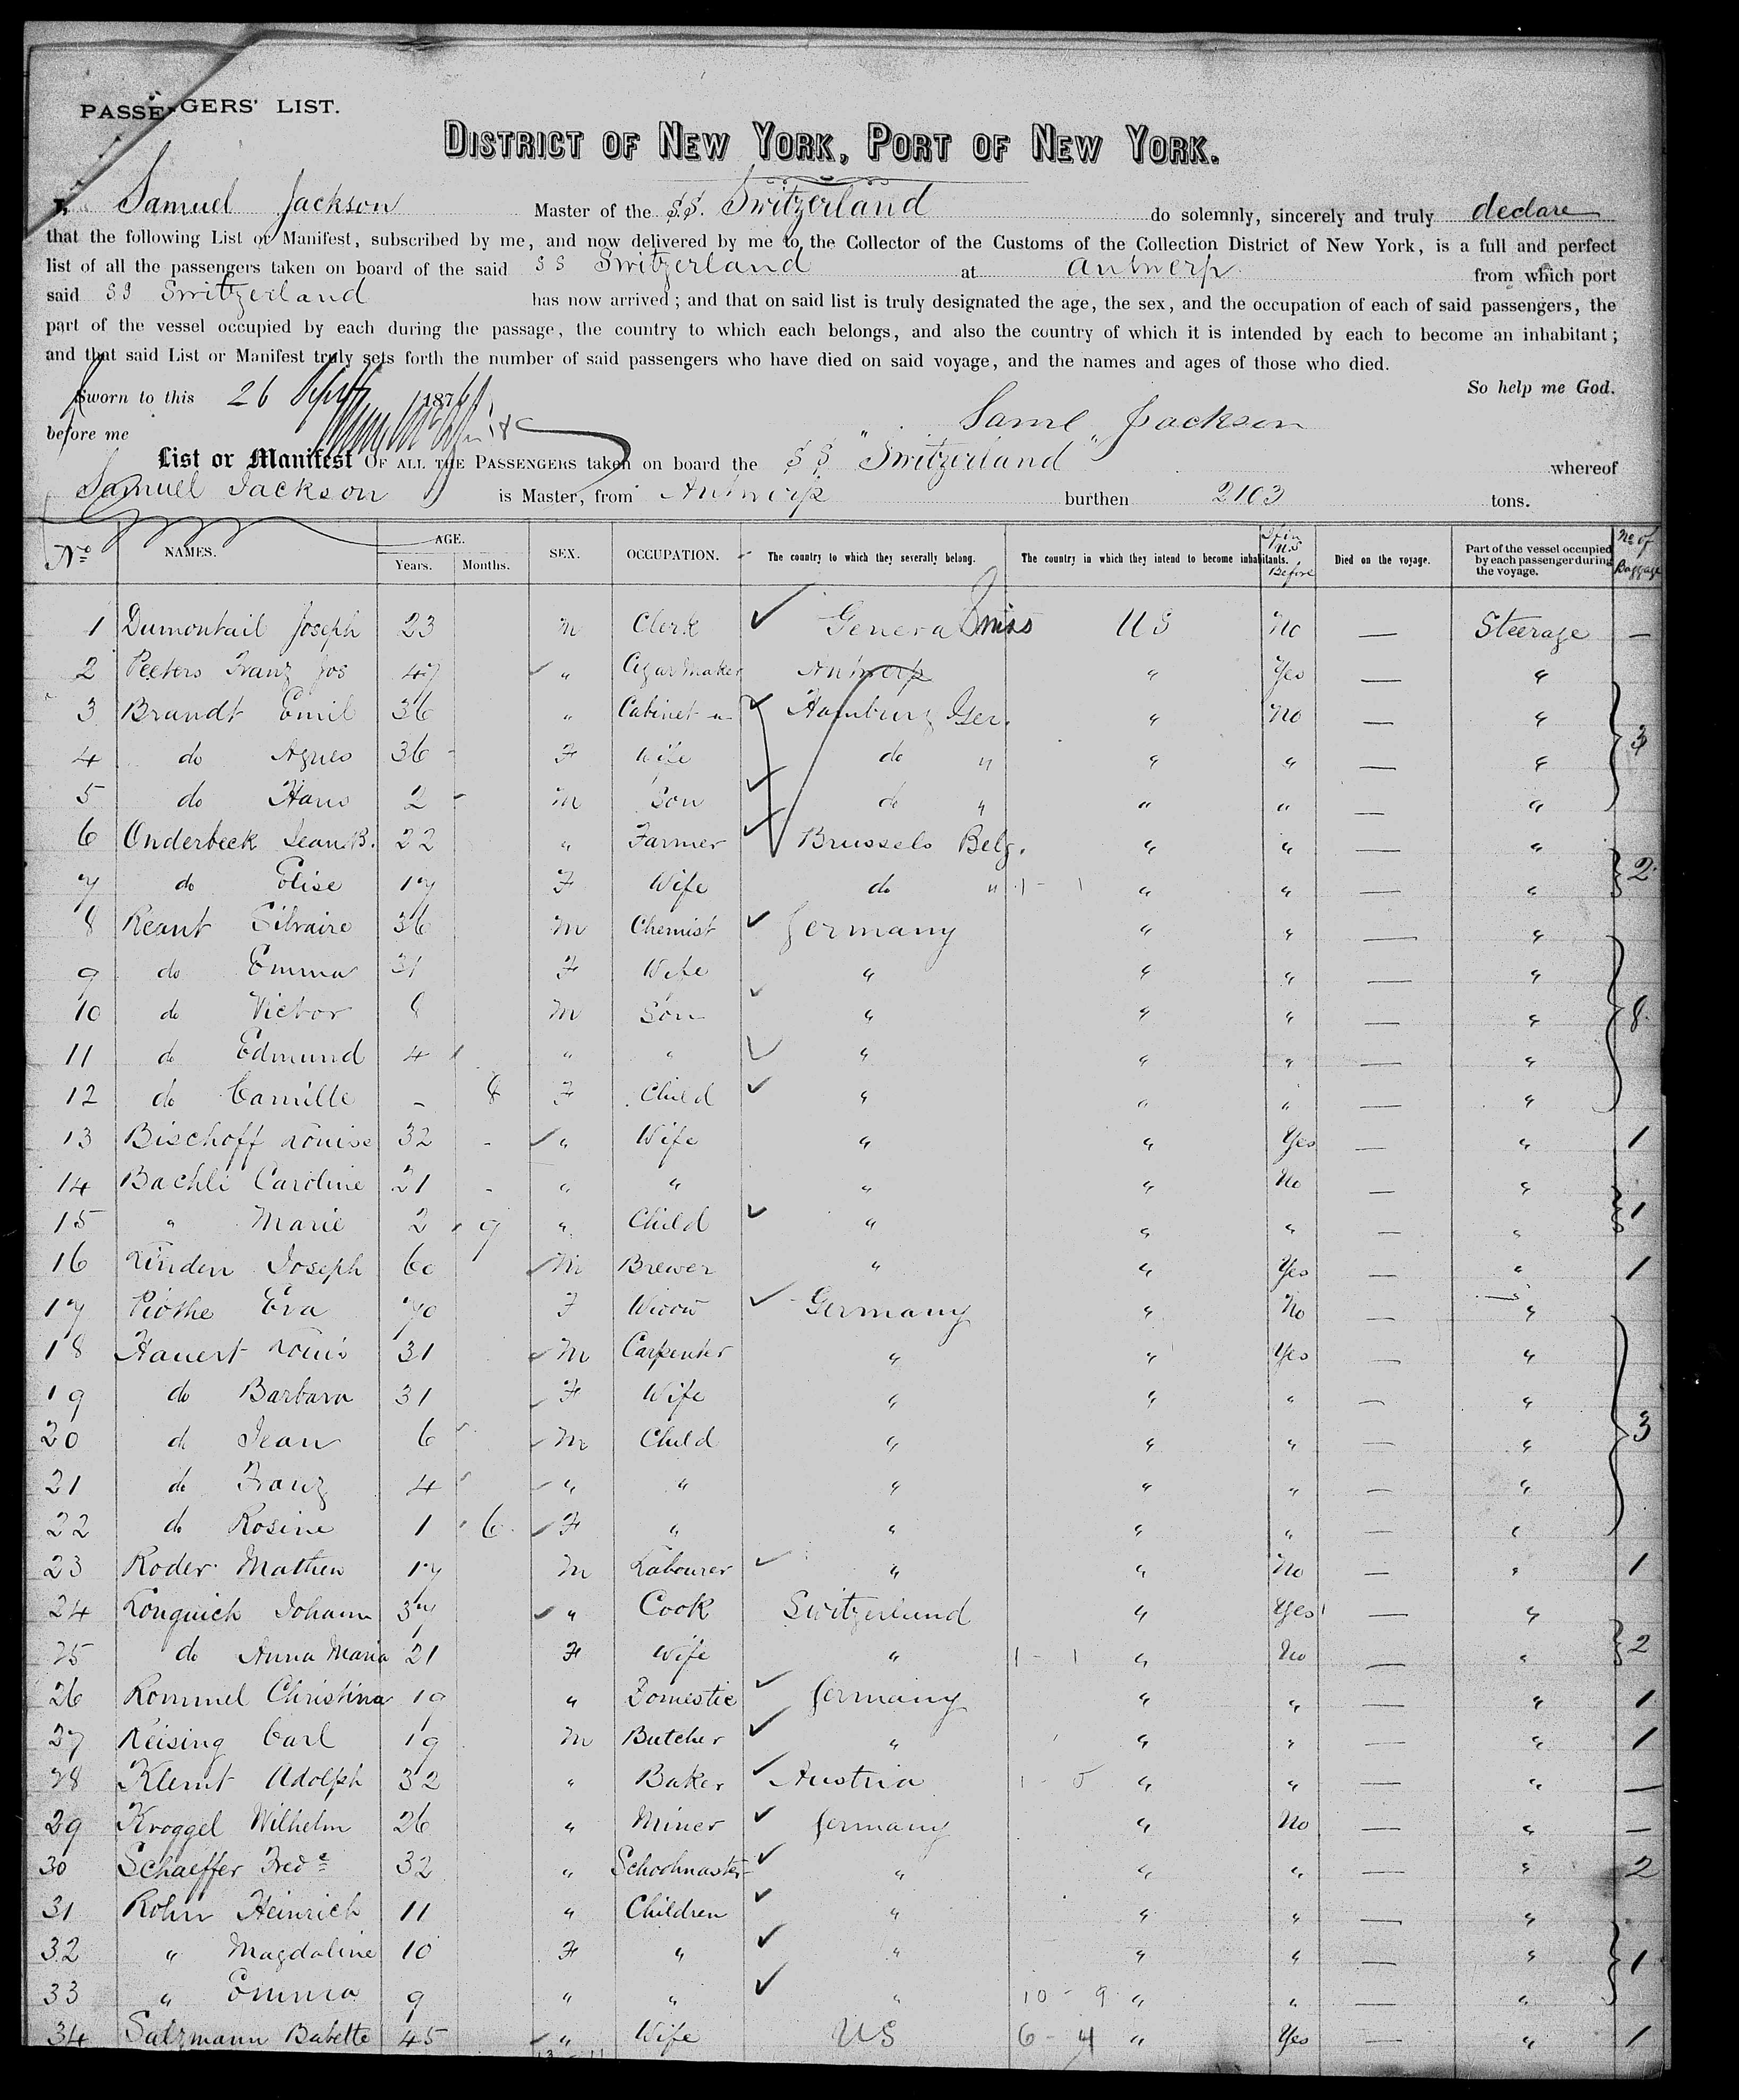 PASSENGERS' LIST.
DISTRICT OF NEW YORK, PORT OF NEW YORK.
I, Samuel Jackson Master of the S.S. Switzerland do solemnly, sincerely and truly declare
that the following List or Manifest, subscribed by me, and now delivered by me to the Collector of the Customs of the Collection District of New York, is a full and perfect
list of all the passengers taken on board of the said SS Switzerland at Antwerp from which port
said SS Switzerland has now arrived; and that on said list is truly designated the age, the sex, and the occupation of each of said passengers, the
part of the vessel occupied by each during the passage, the country to which each belongs, and also the country of which it is intended by each to become an inhabitant;
and that said List or Manifest truly sets forth the number of said passengers who have died on said voyage, and the names and ages of those who died.
Sworn to this 26 Sept 1876 So help me God.
before me Saml Jackson
List or Manifest OF ALL THE PASSENGERS taken on board the SS "Switzerland" whereof
Samuel Jackson is Master, from Antwerp burthen 2103 tons.
No NAMES. AGE. Years. Months. SEX. OCCUPATION. The country to which they severally belong. The country in which they intend to become inhabitants. If in U.S Before Died on the voyage. Part of the vessel occupied by each passenger during the voyage. No of Baggage
1 Dumontail Joseph 23 M Clerk Geneva Swiss US No — Steerage —
2 Peeters Franz Jos 47 " Cigar Maker Antwerp " Yes — "
3 Brandt Emil 36 " Cabinet m Hamburg Ger. " No — " 3
4 do Agnes 36 F Wife do " " " — "
5 do Hans 2 M Son do " " " — "
6 Onderbeek Jean B. 22 " Farmer Brussels Belg. " " — " 2
7 do Elise 17 F Wife do " 1 - 1 " " — "
8 Reant Silvaire 36 M Chemist Germany " " — " 8
9 do Emma 31 F Wife " " " — "
10 do Victor 8 M Son " " " — "
11 do Edmund 4 " " " " " — "
12 do Camille - 8 F Child " " " — "
13 Bischoff Louise 32 - " Wife " " Yes — " 1
14 Bachli Caroline 21 - " " " " No — " 1
15 " Marie 2 9 " Child " " " — "
16 Linden Joseph 60 M Brewer " " Yes — " 1
17 Piothe Eva 70 F Widow Germany " No — "
18 Hauert Louis 31 M Carpenter " " Yes — " 3
19 do Barbara 31 F Wife " " " — "
20 do Jean 6 M Child " " " — "
21 do Franz 4 " " " " " — "
22 do Rosine 1 6 F " " " " — "
23 Roder Mathew 17 M Labourer " " No — " 1
24 Longuich Johann 37 " Cook Switzerland " Yes — " 2
25 do Anna Maria 21 F Wife " 1 - 1 " No — "
26 Rommel Christina 19 " Domestic Germany " " — " 1
27 Reising Carl 19 M Butcher " " " — " 1
28 Klemt Adolph 32 " Baker Austria 1 - 0 " " — " —
29 Kroggel Wilhelm 26 " Miner Germany " No — " —
30 Schaeffer Fredc 32 " Schoolmaster " " " — " 2
31 Rohn Heinrich 11 " Children " " " — " 1
32 " Magdaline 10 F " " " " — "
33 " Emma 9 " " " 10 - 9 " " — "
34 Salzmann Babette 45 " Wife US 6 - 4 " Yes — " 1